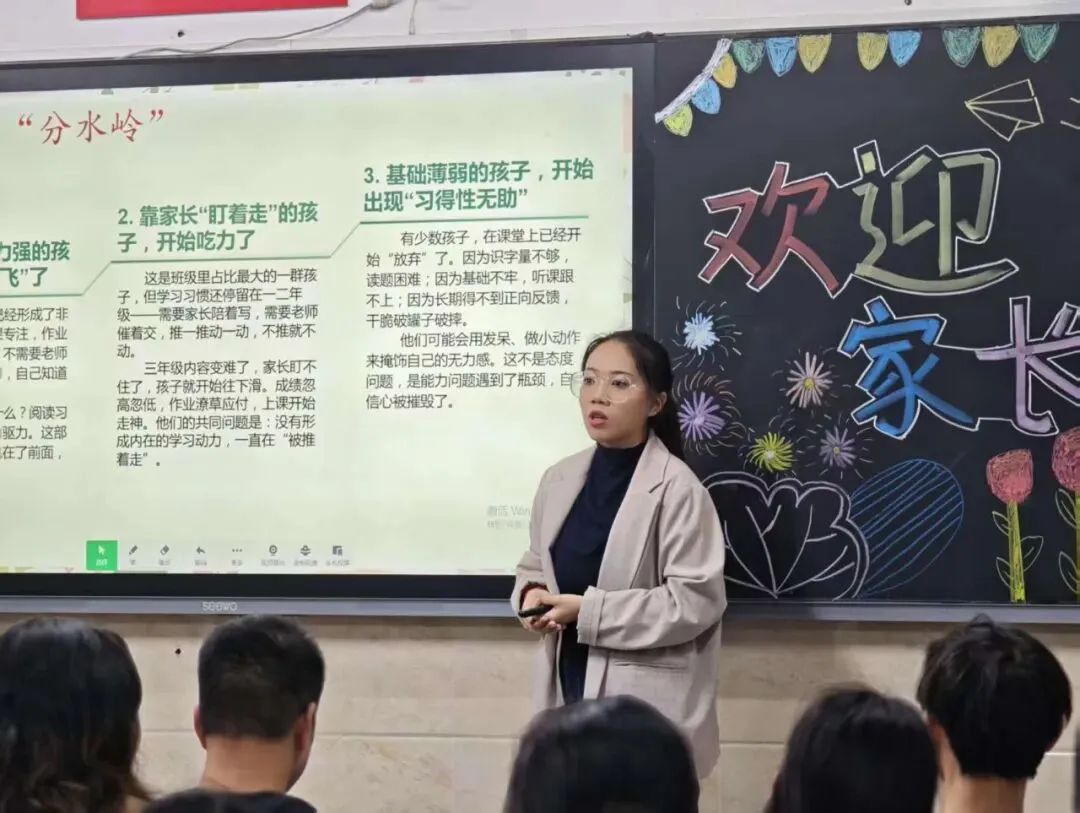 “分水岭”
力强的孩
飞”了
已经形成了非
专注，作业
不需要老师
，自己知道
什么？阅读习
驱力。这部
在了前面，
2. 靠家长“盯着走”的孩
子，开始吃力了
这是班级里占比最大的一群孩
子，但学习习惯还停留在一二年
级——需要家长陪着写，需要老师
催着交，推一推动一动，不推就不
动。
三年级内容变难了，家长盯不
住了，孩子就开始往下滑。成绩忽
高忽低，作业潦草应付，上课开始
走神。他们的共同问题是：没有形
成内在的学习动力，一直在“被推
着走”。
3. 基础薄弱的孩子，开始
出现“习得性无助”
有少数孩子，在课堂上已经开
始“放弃”了。因为识字量不够，
读题困难；因为基础不牢，听课跟
不上；因为长期得不到正向反馈，
干脆破罐子破摔。
他们可能会用发呆、做小动作
来掩饰自己的无力感。这不是态度
问题，是能力问题遇到了瓶颈，自
信心被摧毁了。
激活 Win
seewo
欢迎
家长